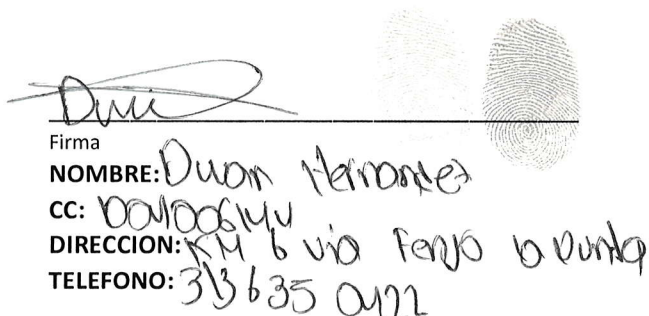 Firma
NOMBRE: Duvan Hernandez
CC: 1001006144
DIRECCION: KM 6 via Tenjo la Punta
TELEFONO: 313 635 0422